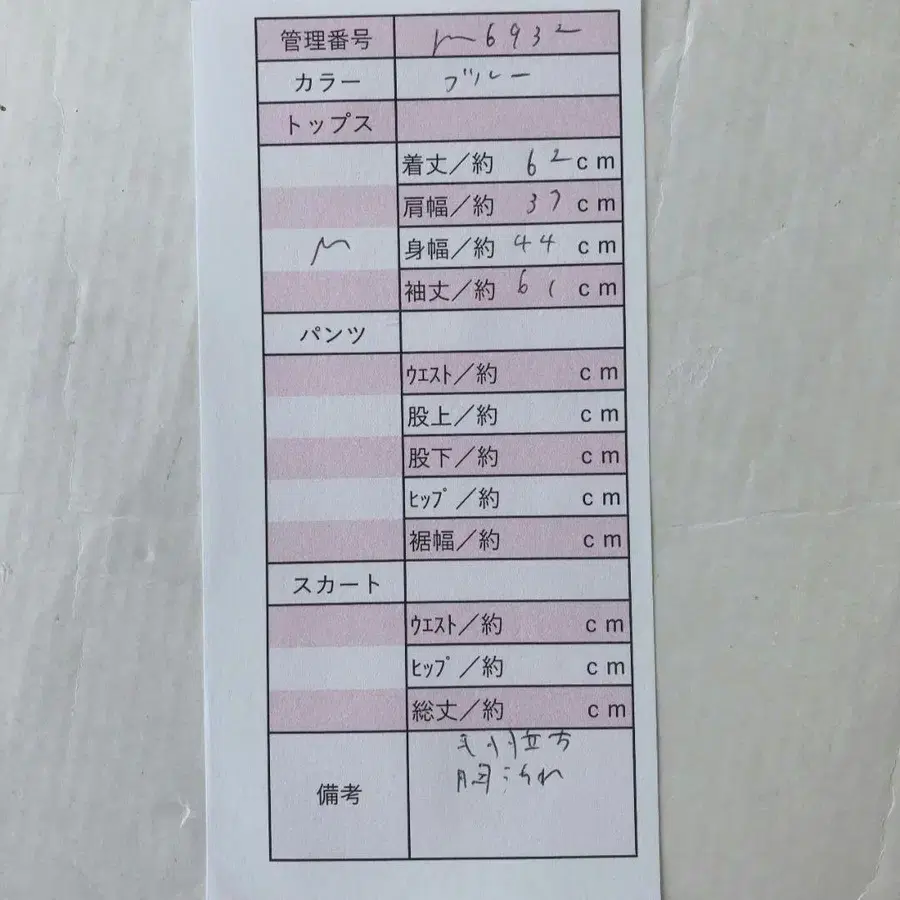 管理番号 m6932
カラー ブルー
トップス
着丈／約 62cm
肩幅／約 37cm
M 身幅／約 44cm
袖丈／約 61cm
パンツ
ｳｴｽﾄ／約 cm
股上／約 cm
股下／約 cm
ﾋｯﾌﾟ／約 cm
裾幅／約 cm
スカート
ｳｴｽﾄ／約 cm
ﾋｯﾌﾟ／約 cm
総丈／約 cm
毛羽立ち
備考 胸汚れ